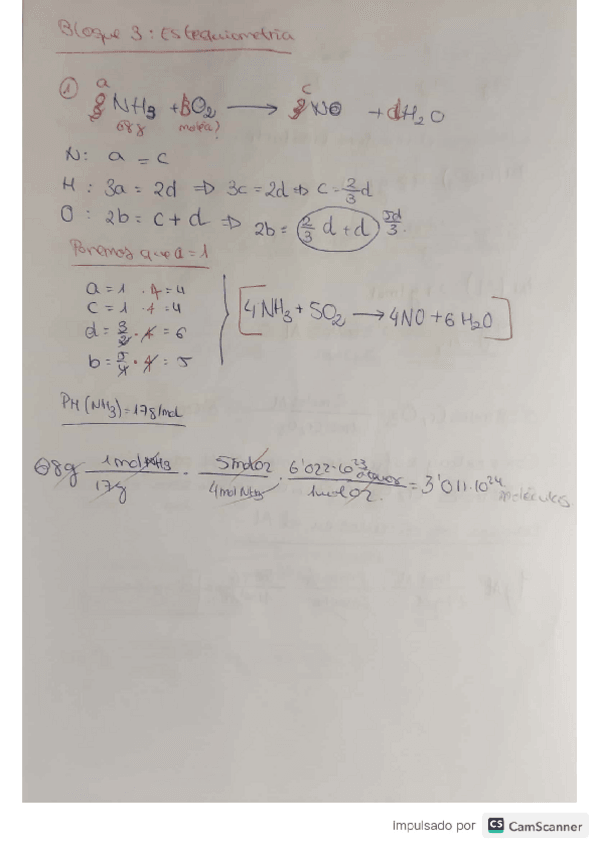 Bloque 3: Estequiometría
① a NH3 + bO2 ⟶ c NO + dH2O
68g moléc?
N: a = c
H: 3a = 2d ⇒ 3c = 2d ⇒ c = 2/3 d
O: 2b = c + d ⇒ 2b = 2/3 d + d 5d/3
Ponemos que a = 1
a = 1 · 4 = 4
c = 1 · 4 = 4
d = 3/2 · 4 = 6
b = 5/4 · 4 = 5
[4NH3 + 5O2 ⟶ 4NO + 6H2O]
PM (NH3) = 17g/mol
68g · 1mol NH3/17g · 5mol O2/4mol NH3 · 6'022·10^23/1mol O2 = 3'011·10^24 moléculas
Impulsado por CS CamScanner